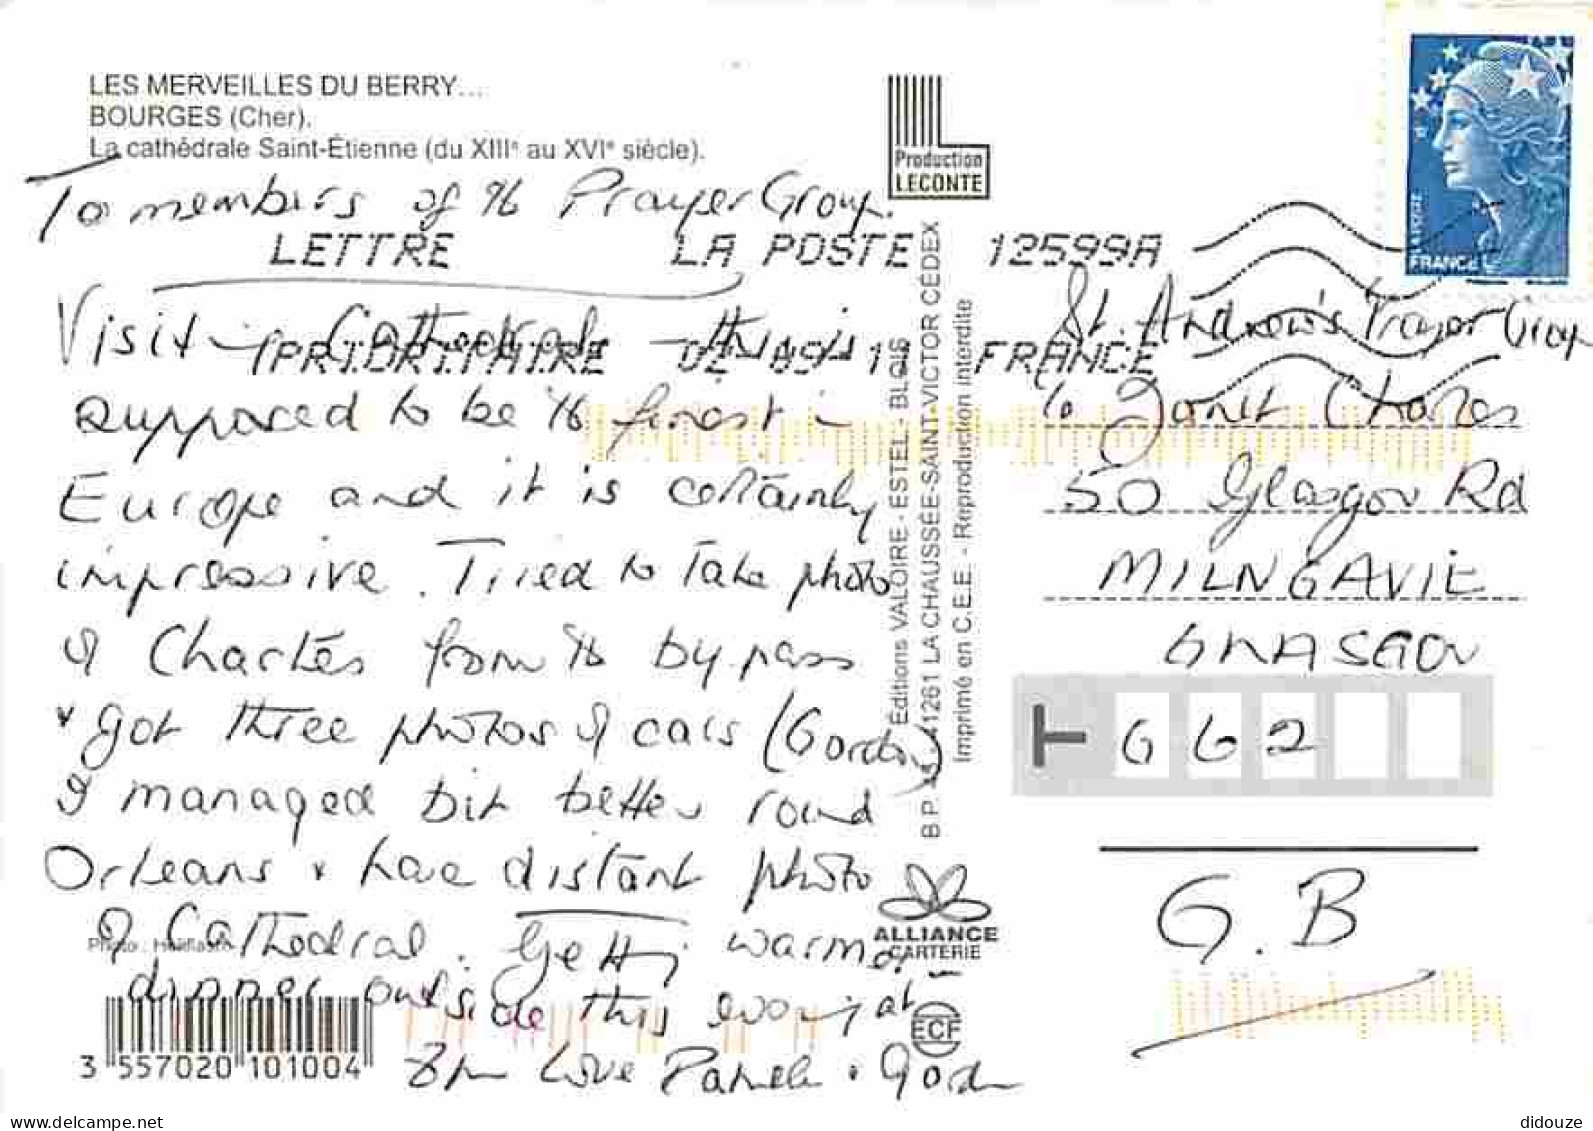 LES MERVEILLES DU BERRY...
BOURGES (Cher).
La cathédrale Saint-Étienne (du XIIIe au XVIe siècle).
To members of the Prayer Group.
Visit Cathedral – this is
supposed to be the finest in
Europe and it is certainly
impressive. Tried to take photo
of Chartes from the bypass
& got three photos of cars (Gordon)
I managed bit better round
Orleans & have distant photo
of Cathedral. Getting warmer –
dinner outside this evening at
8pm Love Pamela & Gordon
Photo : Héliflash
3 557020 101004
Production
LECONTE
Éditions VALOIRE - ESTEL - BLOIS
B.P. 41261 LA CHAUSSÉE-SAINT-VICTOR CÉDEX
Imprimé en C.E.E. - Reproduction interdite
ALLIANCE
CARTERIE
ECF
LETTRE LA POSTE 12599A
PRIORITAIRE FRANCE
FRANCE
St. Andrew's Prayer Group
c/o Janet Charles
50 Glasgow Rd
MILNGAVIE
GLASGOW
G62
G.B
delcampe.net
didouze